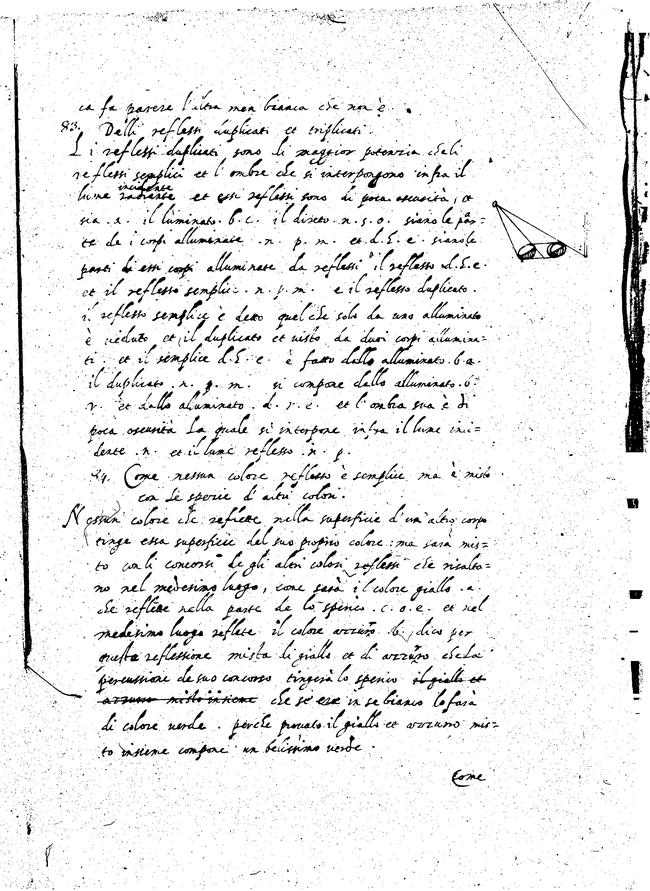 ca fa parere l'altra men bianca che non è.
83. Delli reflessi duplicati et triplicati.
Li reflessi duplicati sono di maggior potenzia che li
reflessi semplici et l'ombre che si interpongono infra il
lume incidente radiante et essi reflessi sono di poca oscusità, et
sia .a. il luminato .b.c. il direto .n.s.o. siano le par=
te de i corpi alluminate .n. p. m. et .d.E.e. siano le
parti de essi corpi alluminate da reflessi il reflesso .d.E.e.
et il reflesso semplic: .n.p.m. e il reflesso duplicato.
il reflesso semplice e detto quel che solo da uno alluminato
è veduto et il duplicato et visto da duoi corpi allumina=
ti. et il semplice d.E.e. è fatto dallo alluminato .b.a.
il duplicato .n. p. m. si compone dallo alluminato .o.
r. et dallo aluminato .d.r.e. et l'ombra sua è di
poca oscusità La quale si interpone infra il lume inci=
dente .n. et il lume reflesso .n. p.
84. Come nessun colore reflesso è semplice ma è misto
con Le specie d'altri colori.
Nessun colore che reflette nella superficie d'un altro corpo
tinge essa superficie del suo proprio colore: ma sarà mis=
to con li concorsi de gli altri colori reflessi che risalta=
no nel medesimo luogo, come sarà il colore giallo .a.
che reflette nella parte de lo sperico .c.o.e. et nel
medesimo luogo reflete il colore azzuro .b. dico per
questa reflessione mista di giallo et di azzuro che la
percussione de suo concorso tingerà lo sperico il giallo et
azzurro misto insieme che s'era in se bianco lo farà
di colore verde. perche provato il giallo et azzurro mis=
to insieme compone un belissimo verde.
Come